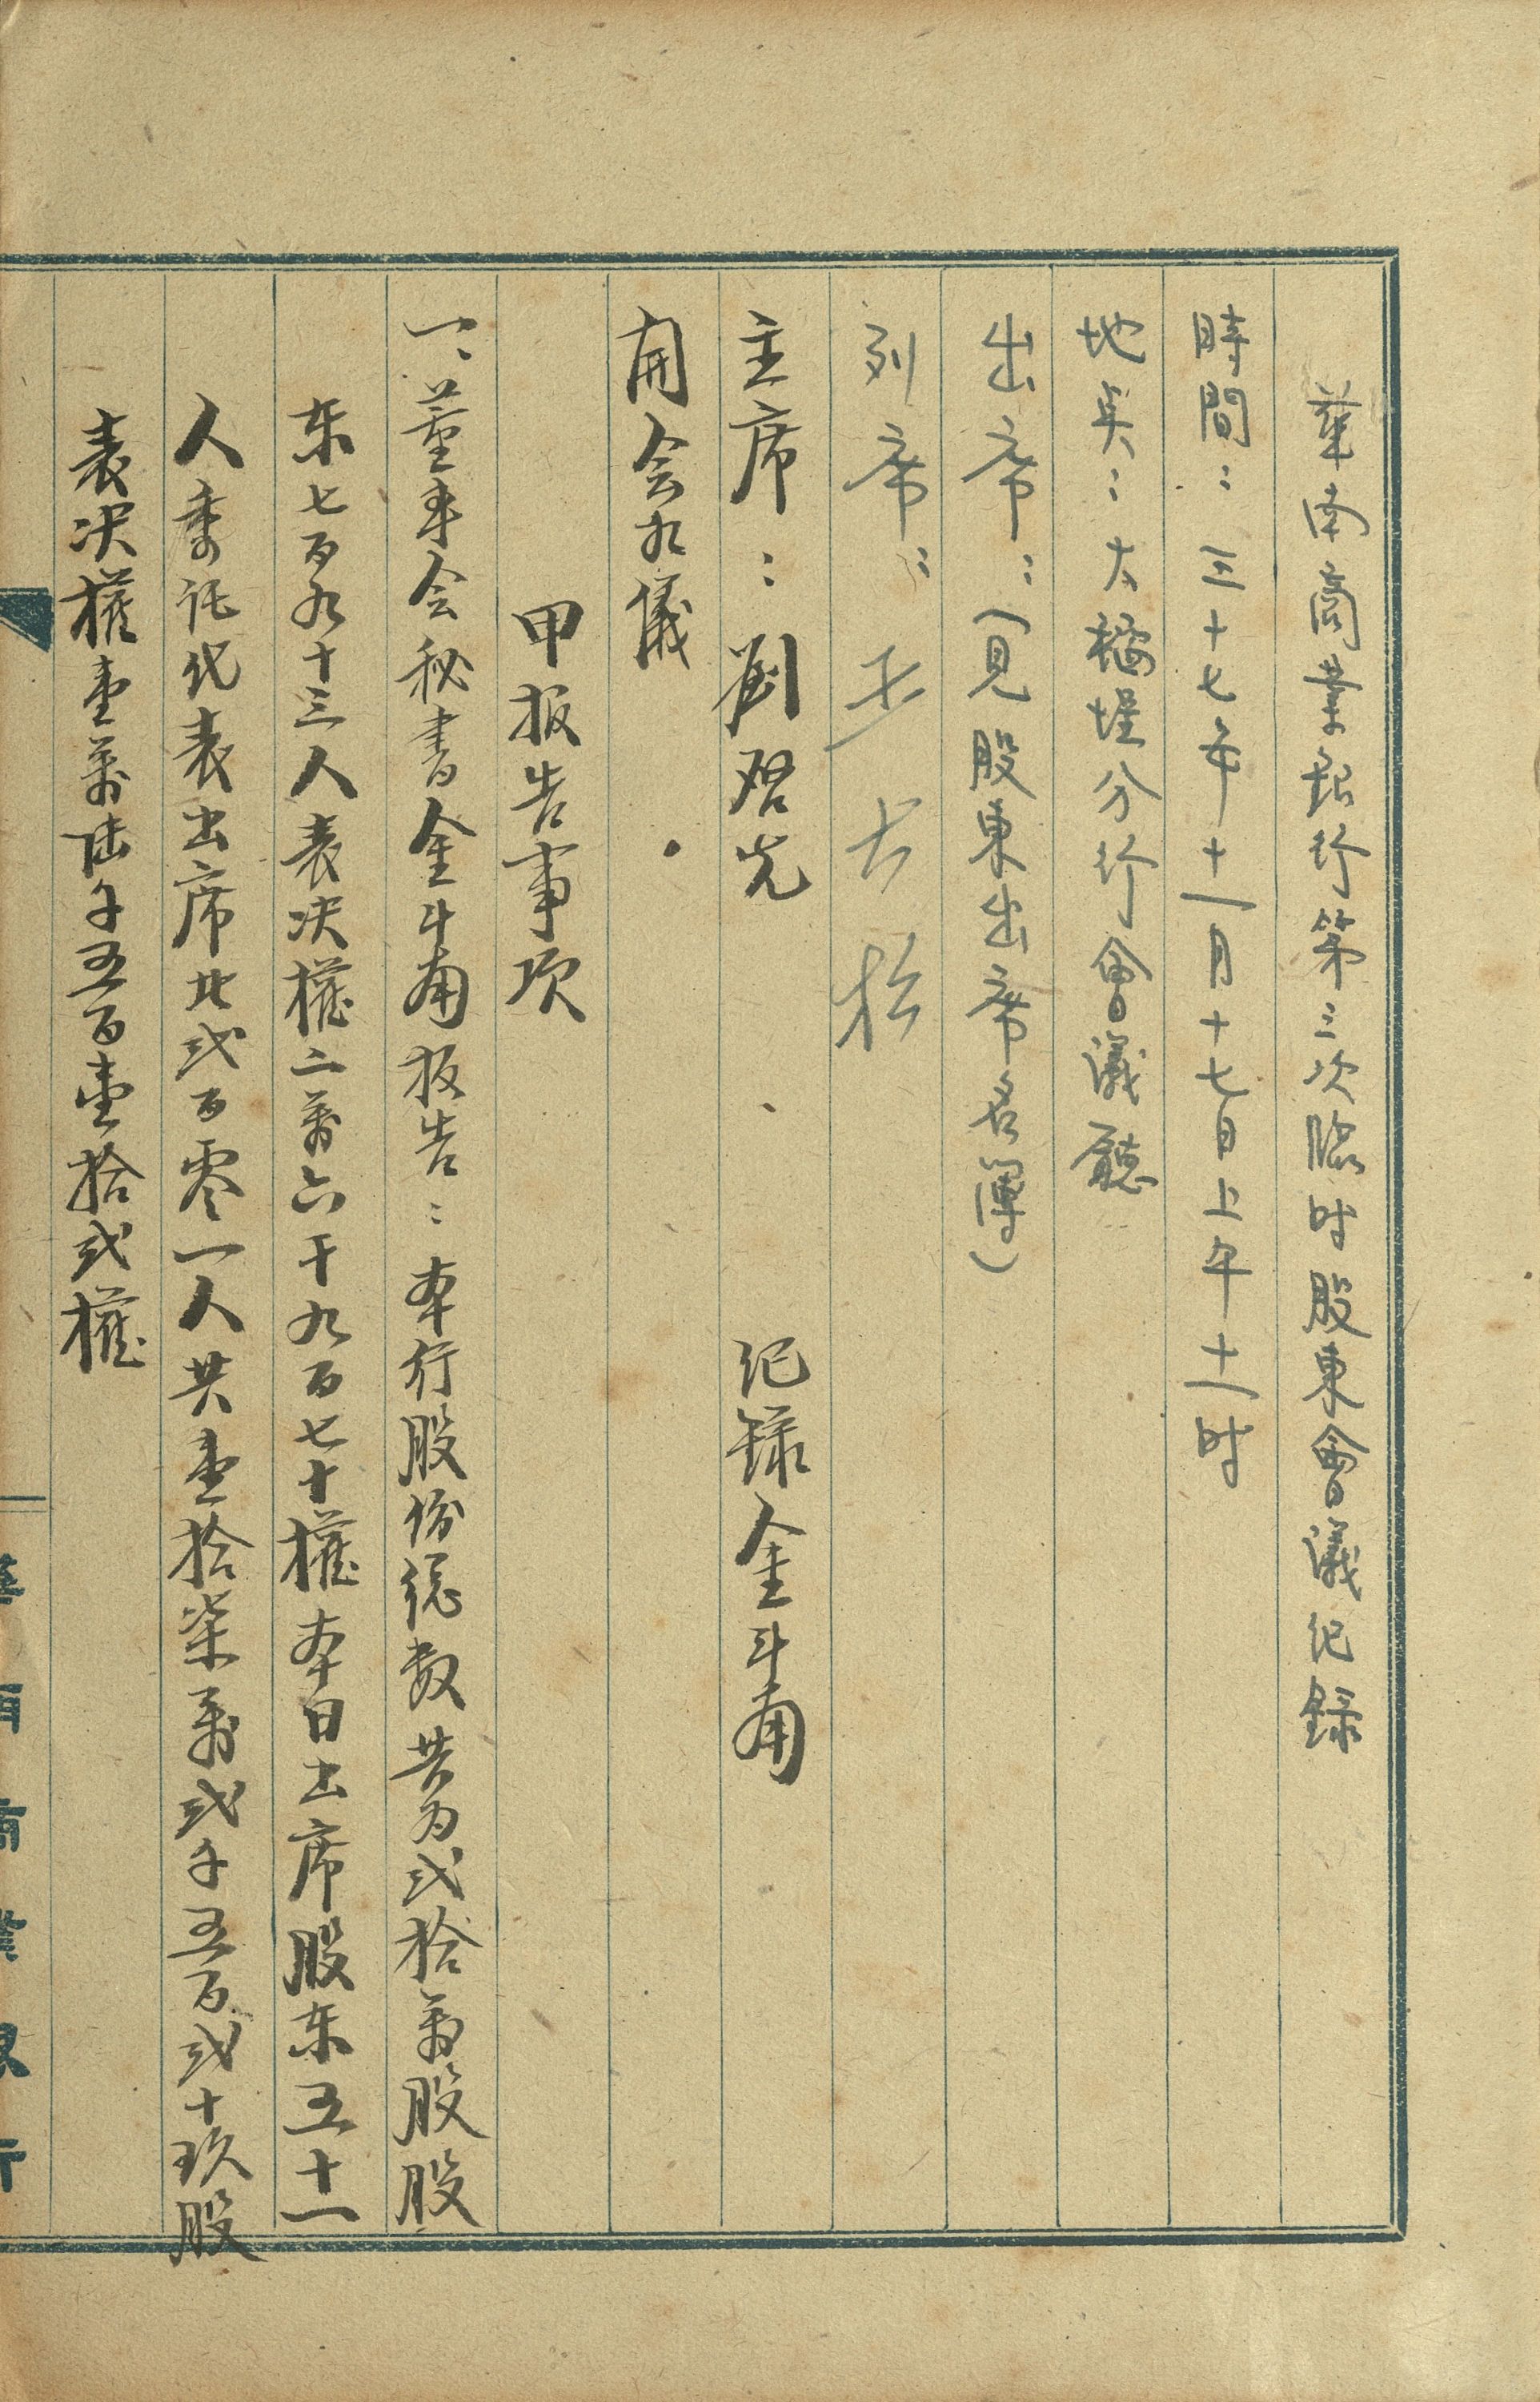 華南商業銀行第三次臨时股東會議纪録
時間：三十七年十一月十七日上午十一时
地奌：大稻埕分行會議廳
出席：（見股東出席名簿）
列席：
主席：劉啓光 纪録金斗甫
開会如儀
甲报告事項
一、董事会秘書金斗甫报告：本行股份總数共为弍拾萬股股
东七百九十三人表决權二萬六千九百七十權本日出席股东五十一
人委託代表出席北弍百零一人共壹拾柒萬弍千五百弍十玖股
表决權壹萬陆千五百壹拾弍權
華南商業銀行